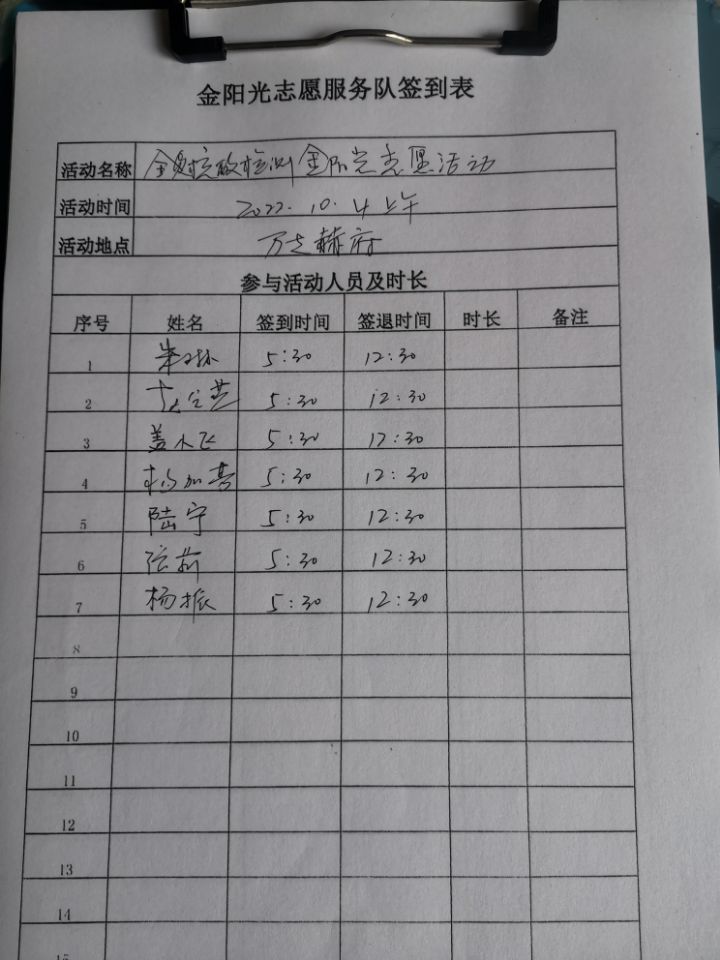 金阳光志愿服务队签到表
活动名称 全员核酸检测金阳光志愿活动
活动时间 2022.10.4上午
活动地点 万达赫府
参与活动人员及时长
序号 姓名 签到时间 签退时间 时长 备注
1 5:30 12:30
2 5:30 12:30
3 盖小飞 5:30 12:30
4 杨加芸 5:30 12:30
5 陆宁 5:30 12:30
6 张莉 5:30 12:30
7 杨振 5:30 12:30
8
9
10
11
12
13
14
15